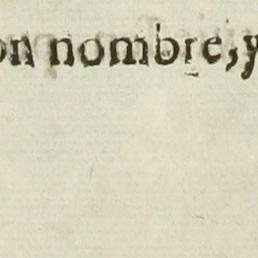 on nombre, y